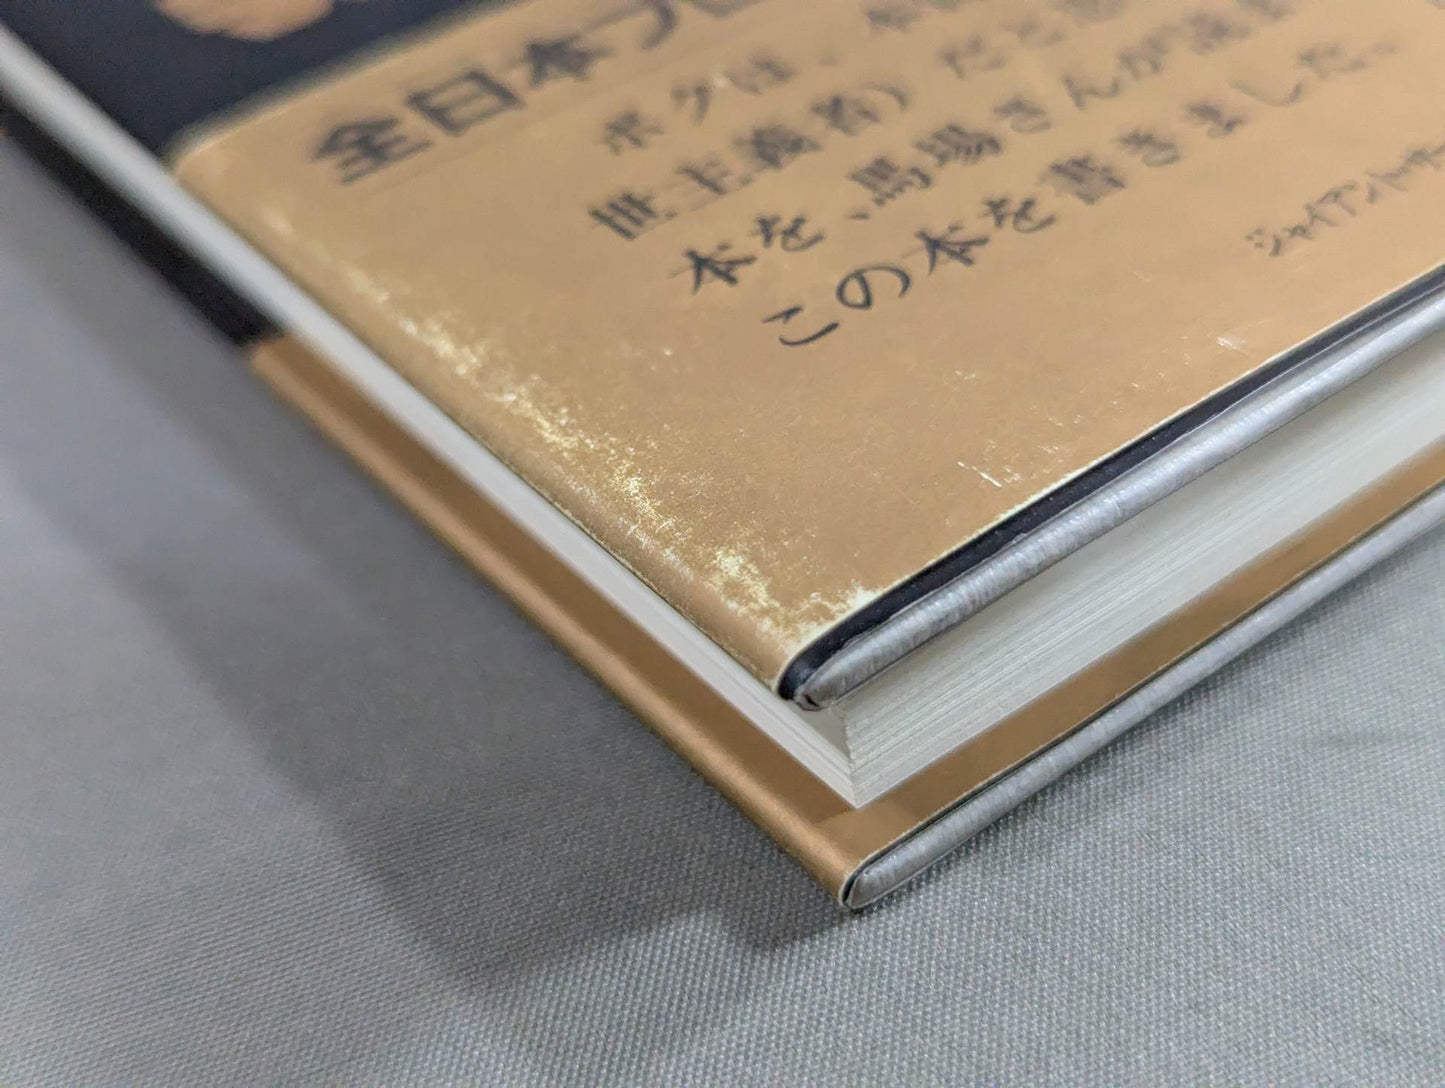 全日本プロ
ボクは、
世主義者)だと
本を、馬場さんが
この本を書きました。
ジャイアント